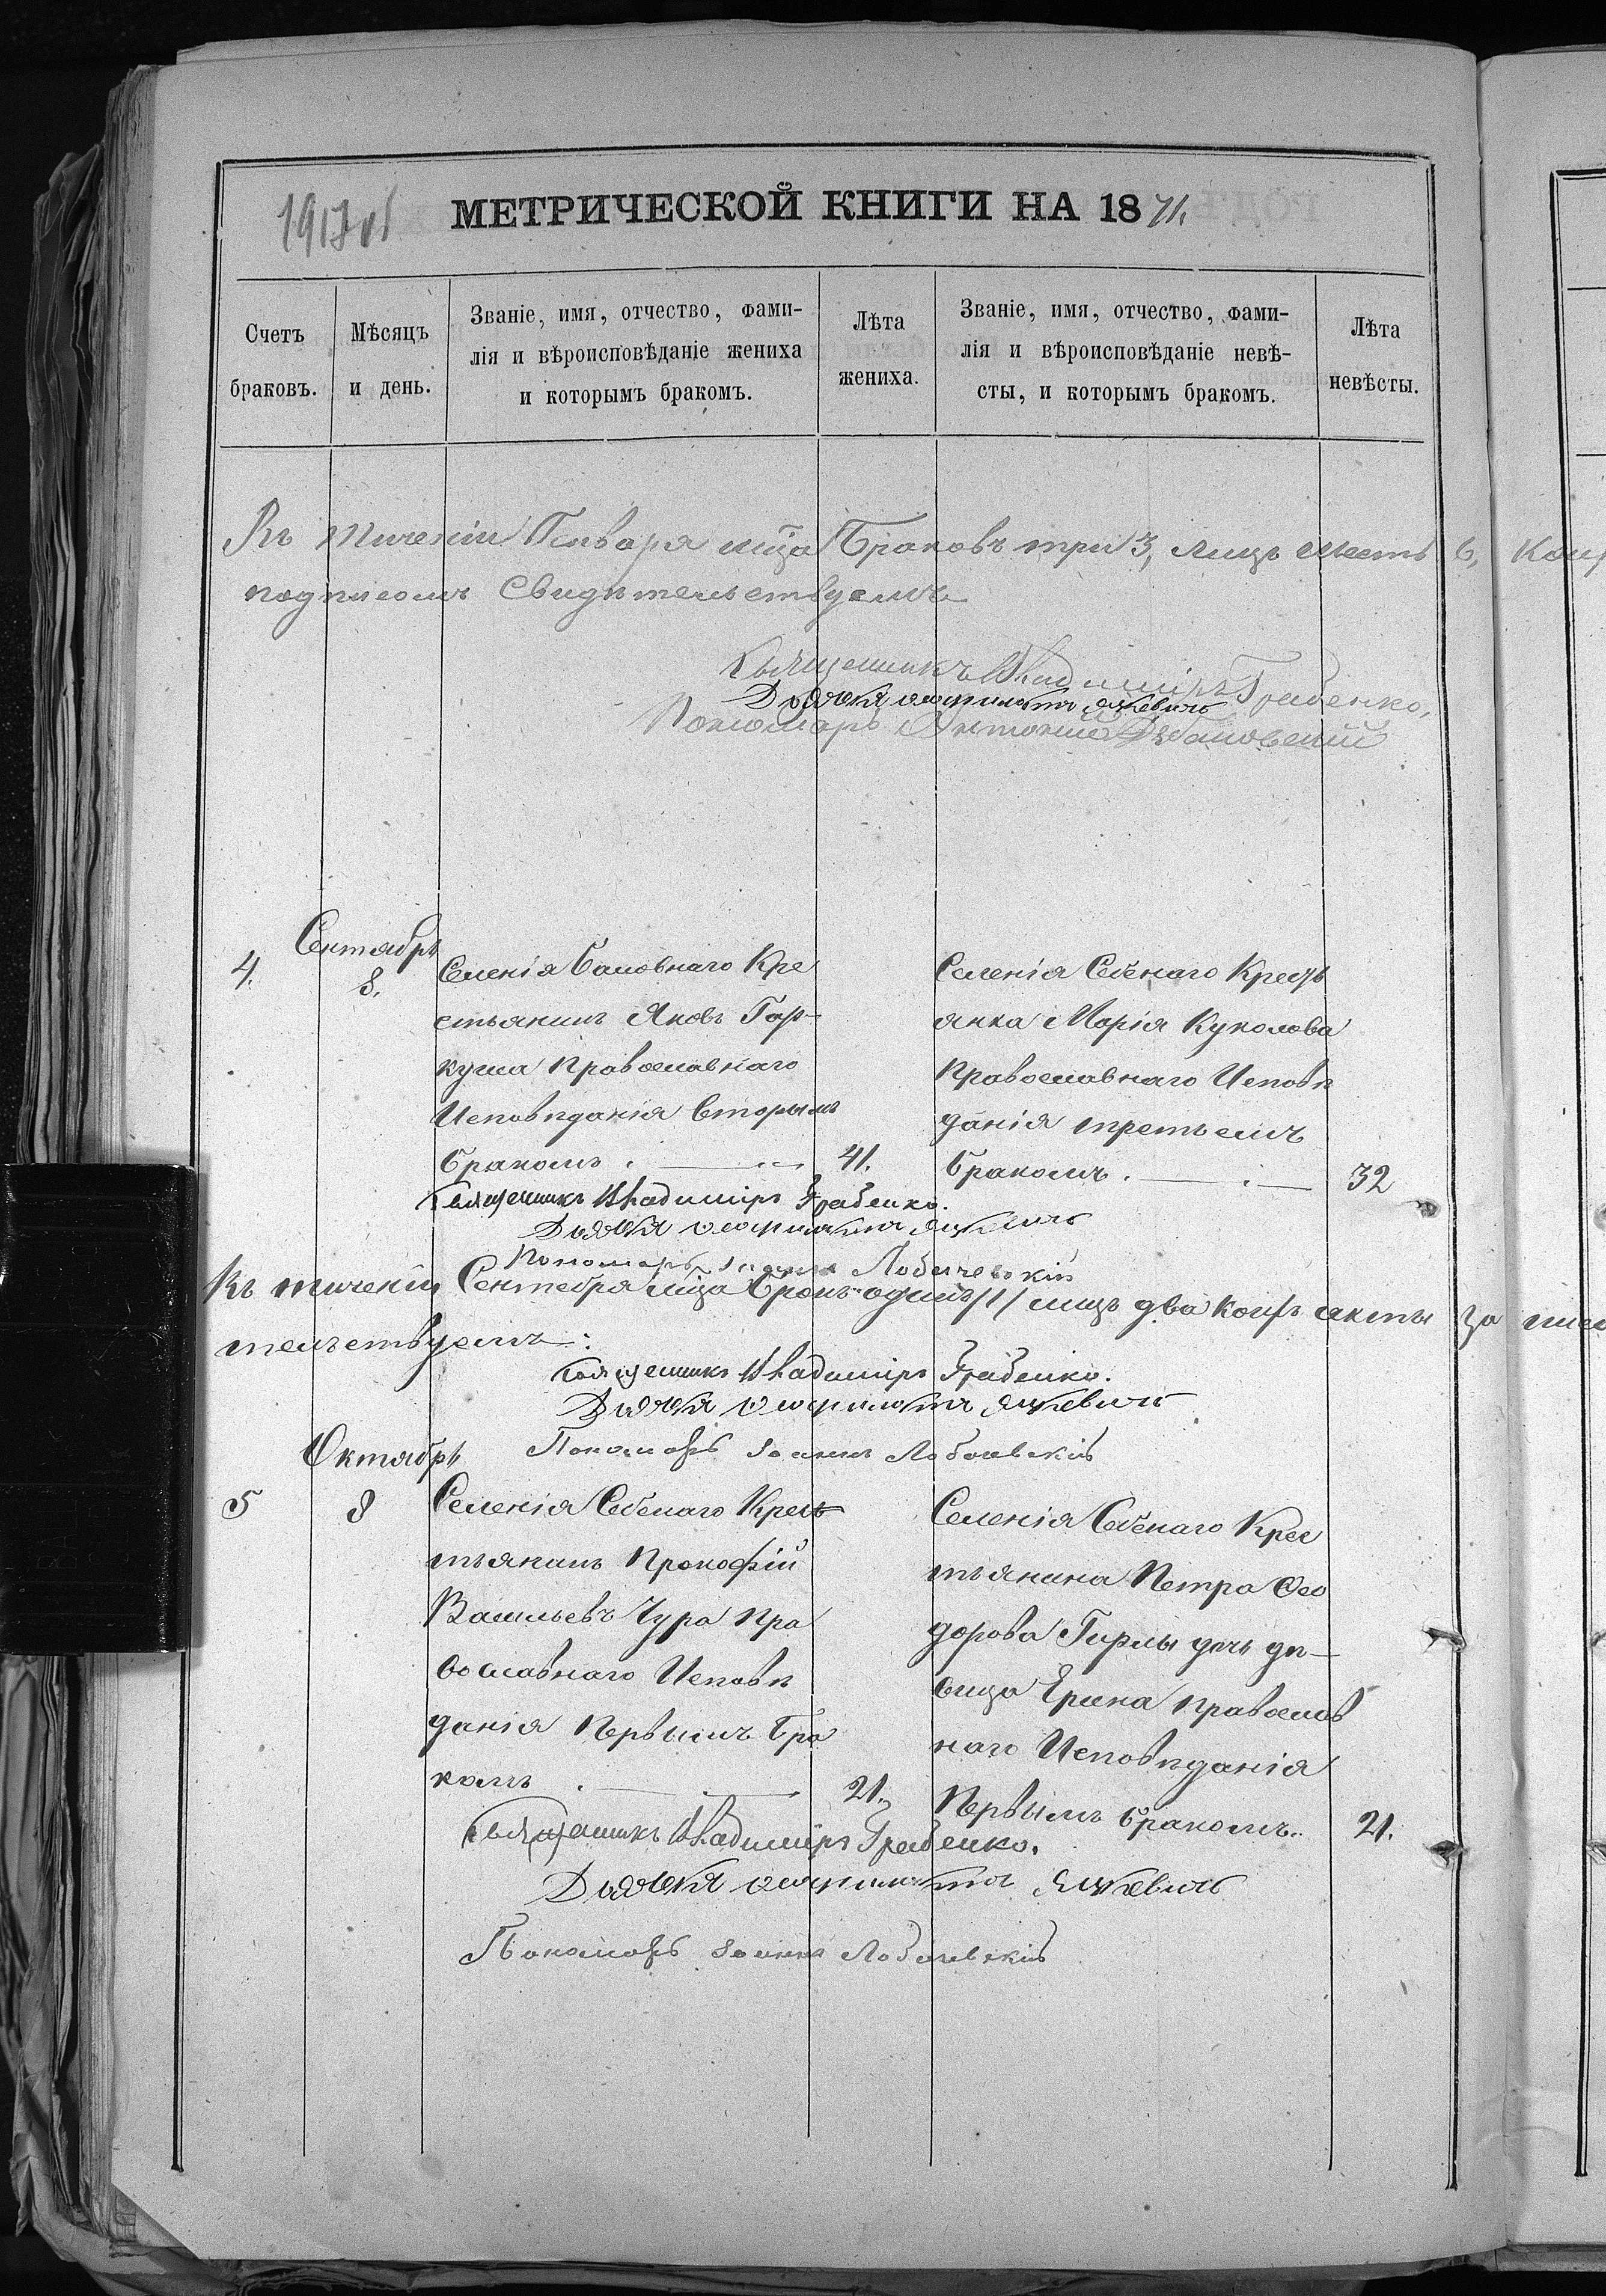 МЕТРИЧЕСКОЙ КНИГИ НА 1871.
Счетъ браковъ.
Мѣсяцъ и день.
Званіе, имя, отчество, фами-
лія и вѣроисповѣданіе жениха
и которымъ бракомъ.
Лѣта жениха.
Званіе, имя, отчество, фами-
лія и вѣроисповѣданіе невѣ-
сты, и которымъ бракомъ.
Лѣта невѣсты.
Въ теченіи Генваря мца Браковъ три 3, лицъ шесть 6,
подписомъ Свидѣтельствуемъ
Священникъ Владиміръ Грабенко,
Дьячекъ Яцкевичъ
Пономарь Антоній
Сентябрь
4.
8.
Селенія Кре
стьянинъ Яковъ Гар-
куша Православнаго
Исповѣданія Вторымъ
Бракомъ
41.
Селенія Себенаго Крестъ
янка Марія Куколова
Православнаго Исповѣ
данія третьемъ
Бракомъ.
32
Священникъ Владиміръ Грабенко.
Дьячекъ Яцкевичъ
Пономарь Іоаннъ Лобачевскій
Въ теченіи Сентебря мца Бракъ одинъ /1/ лицъ два коихъ акты за
тельствуемъ:
Священникъ Владиміръ Грабенко.
Дьячекъ Яцкевичъ
Пономарь Іоаннъ Лобачевскій
Октябрь
5
8
Селенія Себенаго Кресь
тьянинъ Прокофій
Васильевъ Чура Пра
вославнаго Исповѣ
данія Первымъ Бра
комъ
21.
Селенія Себенаго Крес
тьянина Петра Фео
дорова Гирлы дочь дѣ-
вица Ерина Православ
наго Исповѣданія
Первымъ бракомъ.
21.
Священникъ Владиміръ Грабенко.
Дьячекъ Яцкевичъ
Пономарь Іоаннъ Лобачевскій